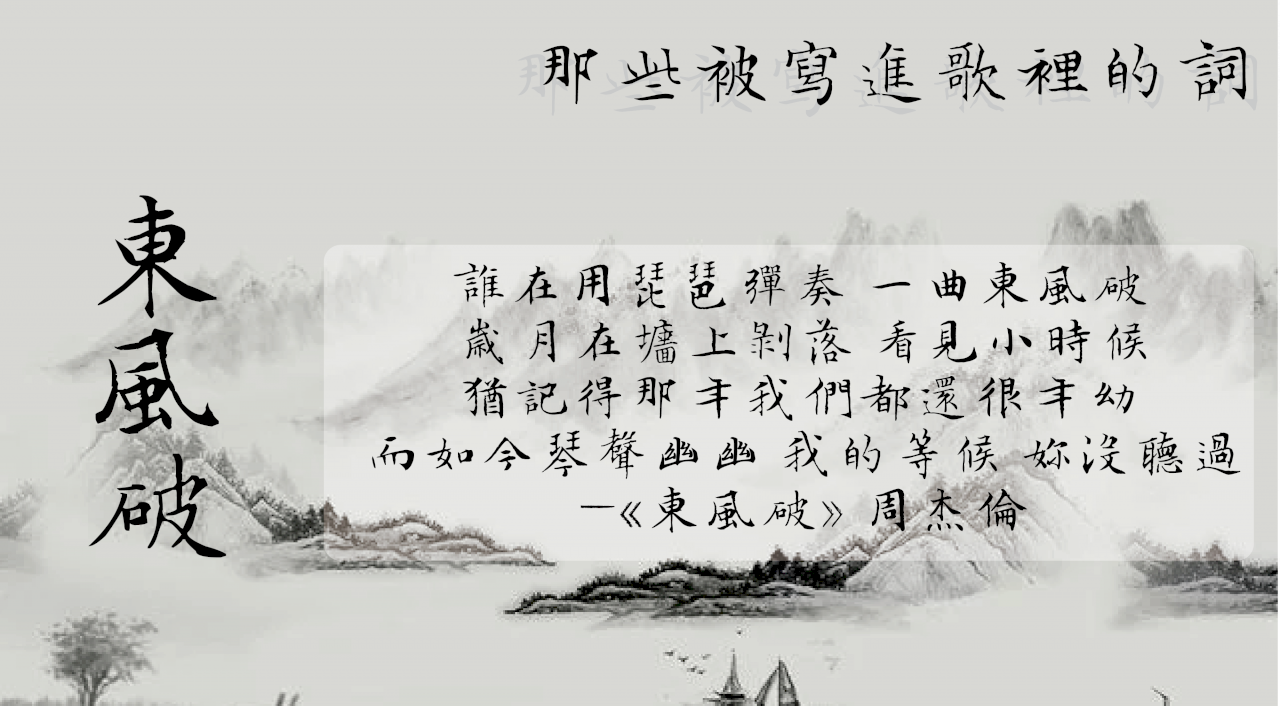 那些被寫進歌裡的詞
東風破
誰在用琵琶彈奏 一曲東風破
歲月在墻上剝落 看見小時候
猶記得那年我們都還很年幼
而如今琴聲幽幽 我的等候 妳沒聽過
—《東風破》周杰倫